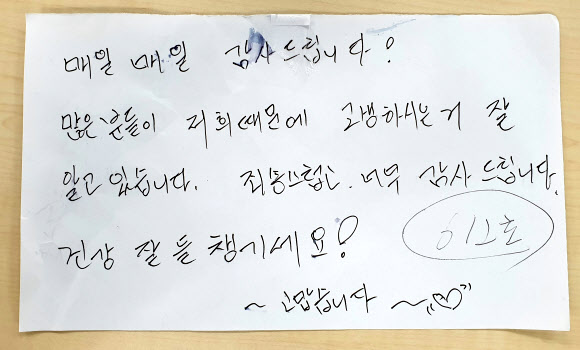 매일 매일 감사드립니다!
많은 분들이 저희때문에 고생하시는거 잘
알고 있습니다. 죄송스럽고. 너무 감사드립니다.
건강 잘 들 챙기세요!
612호
~ 고맙습니다 ~ "♡"